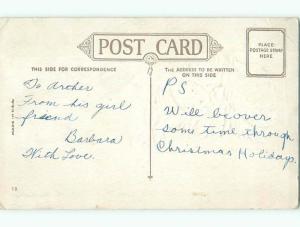 POST CARD
THIS SIDE FOR CORRESPONDENCE
THE ADDRESS TO BE WRITTEN
ON THIS SIDE
PLACE
POSTAGE STAMP
HERE
To Archer
From his girl
freend
Barbara
With Love.
P.S.
Will be over
some time through
Christmas Holidays.
MADE IN U.S.A.